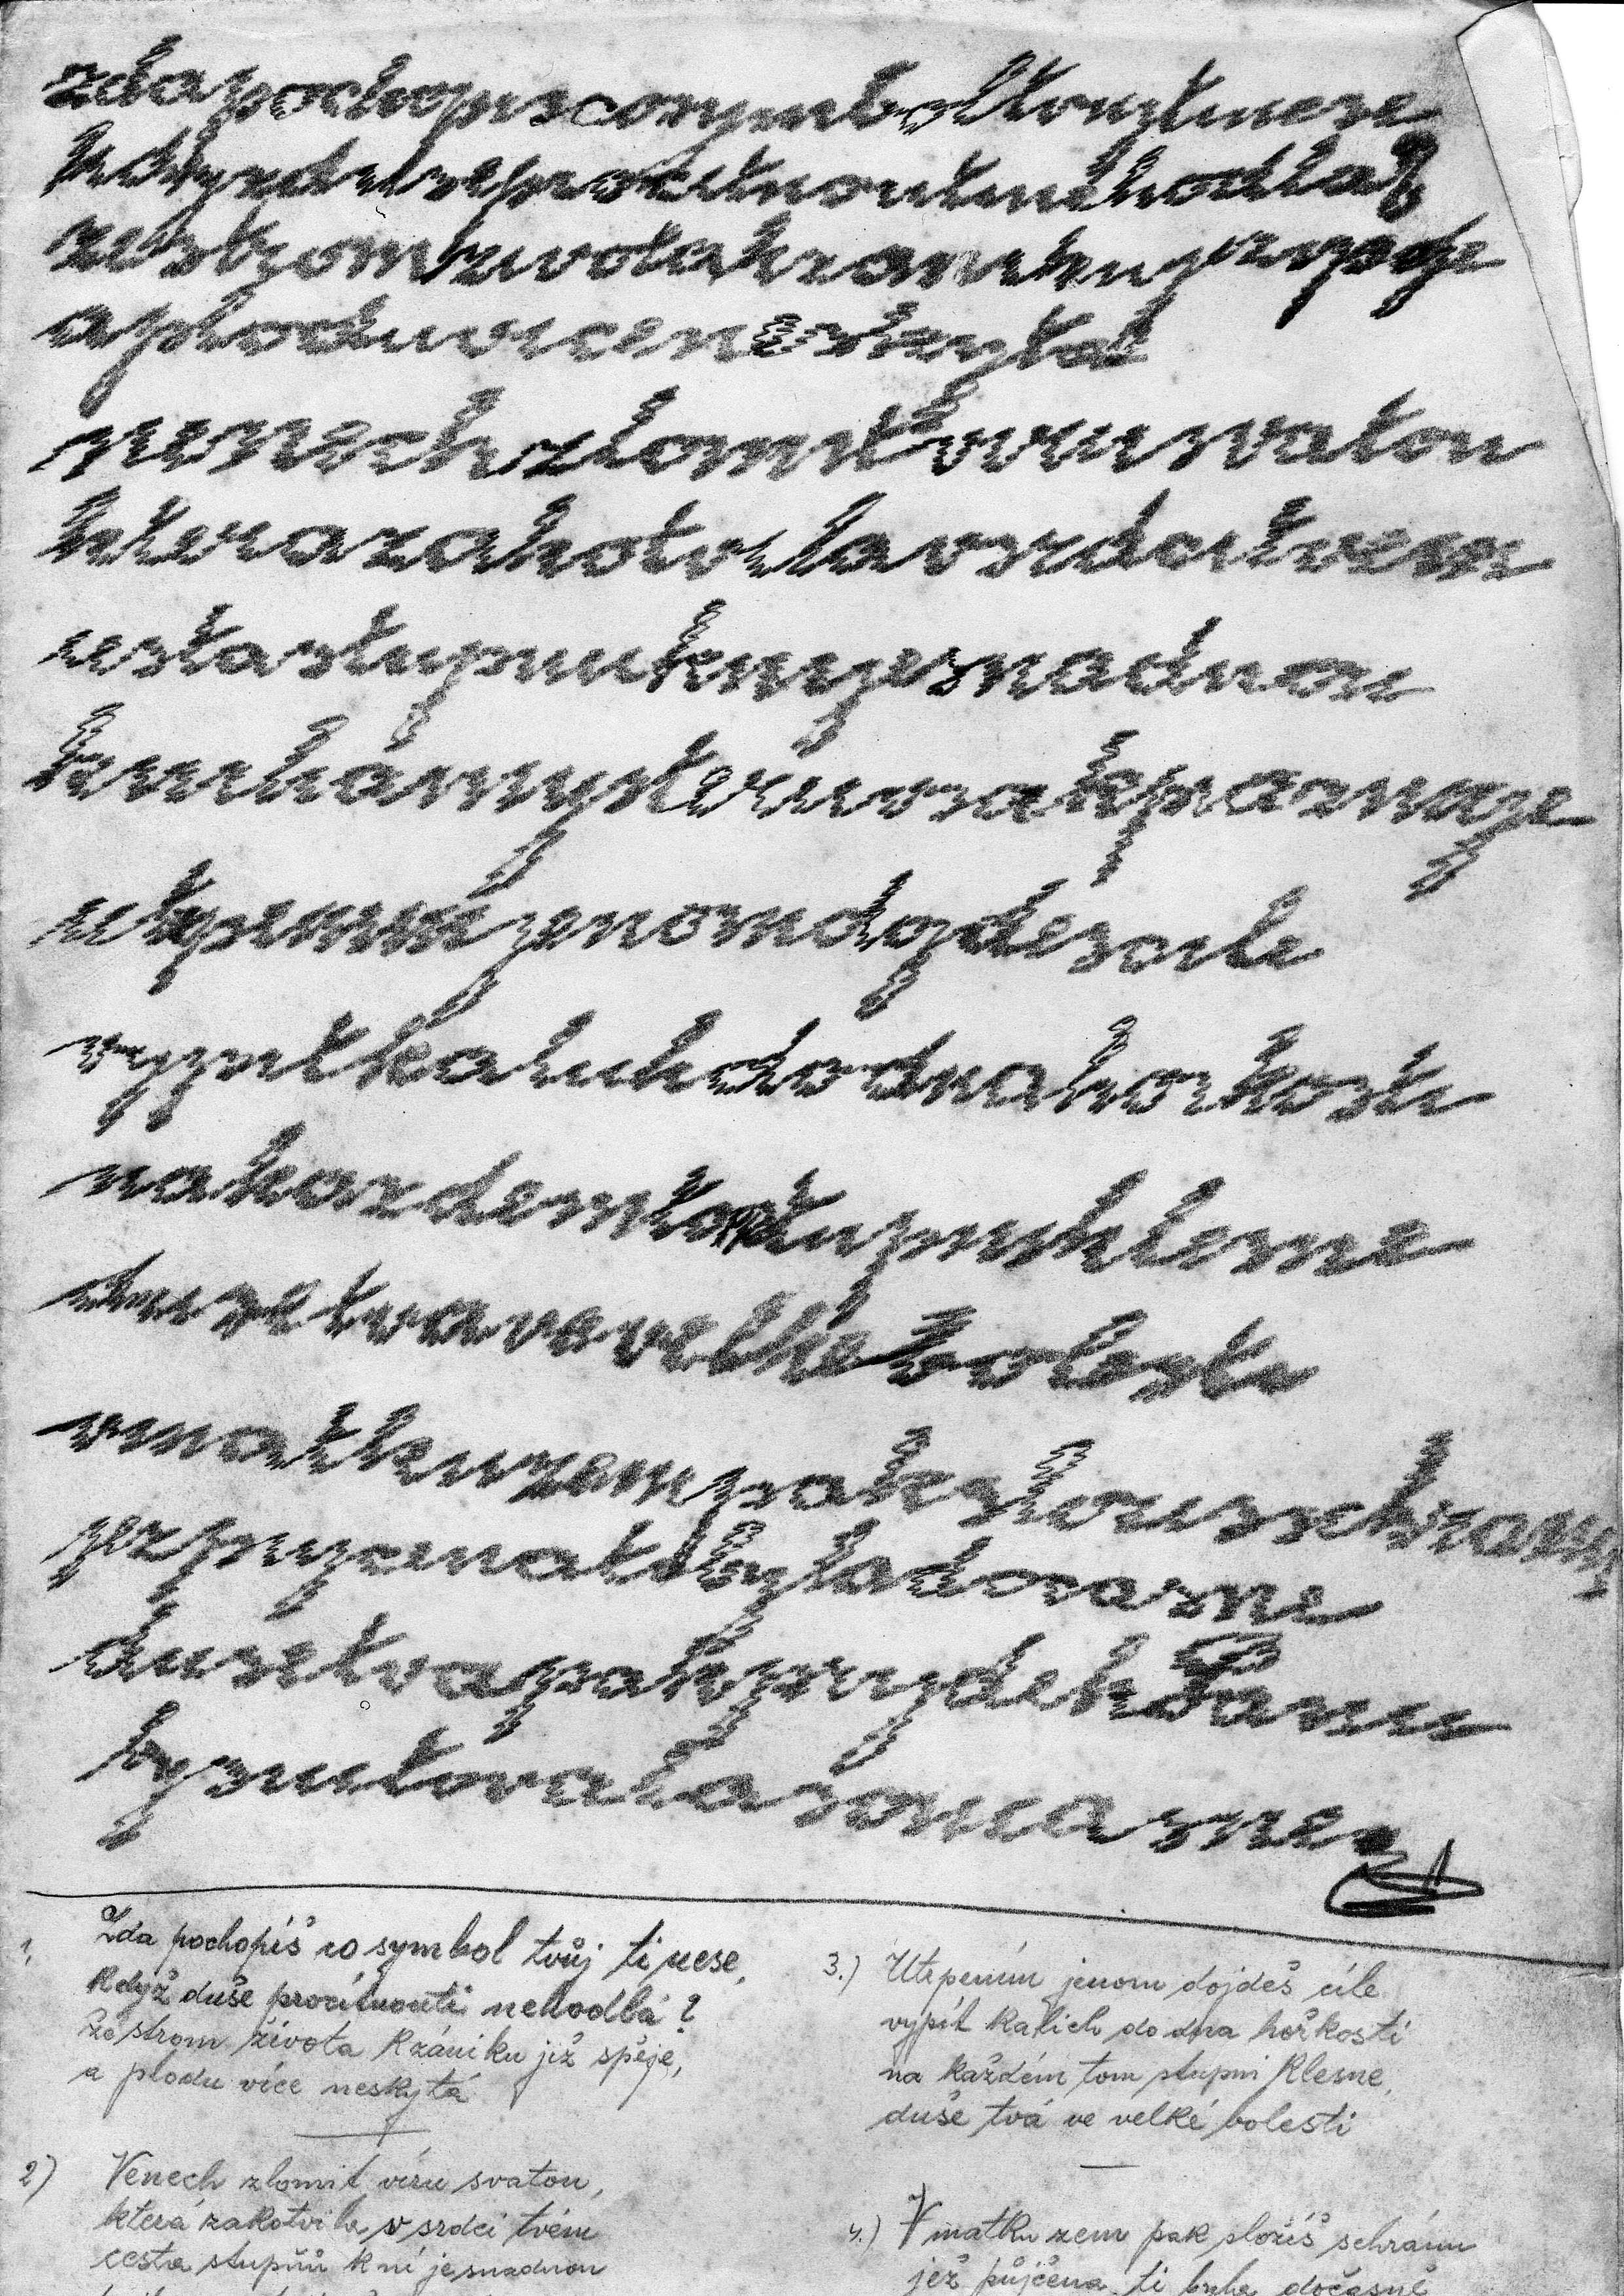 zdapochopiscosymboltvujtinese
kdyzduseprocitnoutinehodla?
zestromzivotakzanikujizspeje
aploduvíceneskyta
nenechzlomitviruvsvatou
kterazakotvilavsrdcitvem
cestastupnuknijesnadnou
utrpenimjenomdojdescile
vypitkalichdodnahorkosti
nakazdemtomstupniklesne
dusetvavevelkebolesti
vmatkuzempakslozisschranu
jizpujcenatibyladocasne
dusetvapakprijdekpanu
byputovalazoncasne
1. Zda pochopíš co symbol tvůj ti nese,
když duše procitnouti nehodlá?
že strom života k zániku již spěje,
a plodu více neskytá
2) Nenech zlomit víru svatou,
která zakotvila v srdci tvém
cesta stupňů k ní je snadnou
3.) Utrpením jenom dojdeš cíle
vypít kalich do dna hořkosti
na každém tom stupni klesne,
duše tvá ve velké bolesti
4.) V matku zem pak složíš schránu
jež půjčena ti byla dočasně